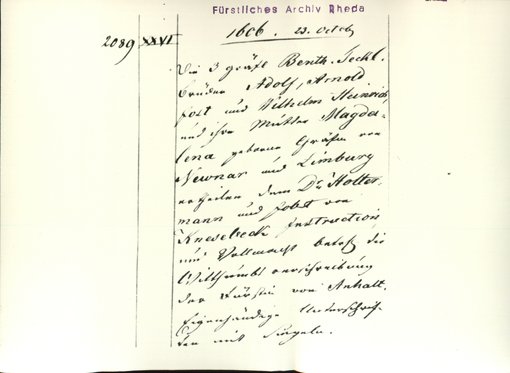 Fürstliches Archiv Rheda
1606. 23. Octob
2089 XXVI
Die 3 gräfl. Benth. Teckl.
brüder Adolf, Arnold
Jost und Wilhelm Heinrich,
und ihre Mutter Magda-
lena geborne Gräfin von
Newnar und Limburg
ertheilen dem Dr. Holter-
mann und Jobst von
Knesebeck Instruction
und Vollmacht betrf. die
Witthumbs verschreibung
der Fürstin von Anhalt.
Eigenhändige Unterschrif-
ten mit Siegeln.